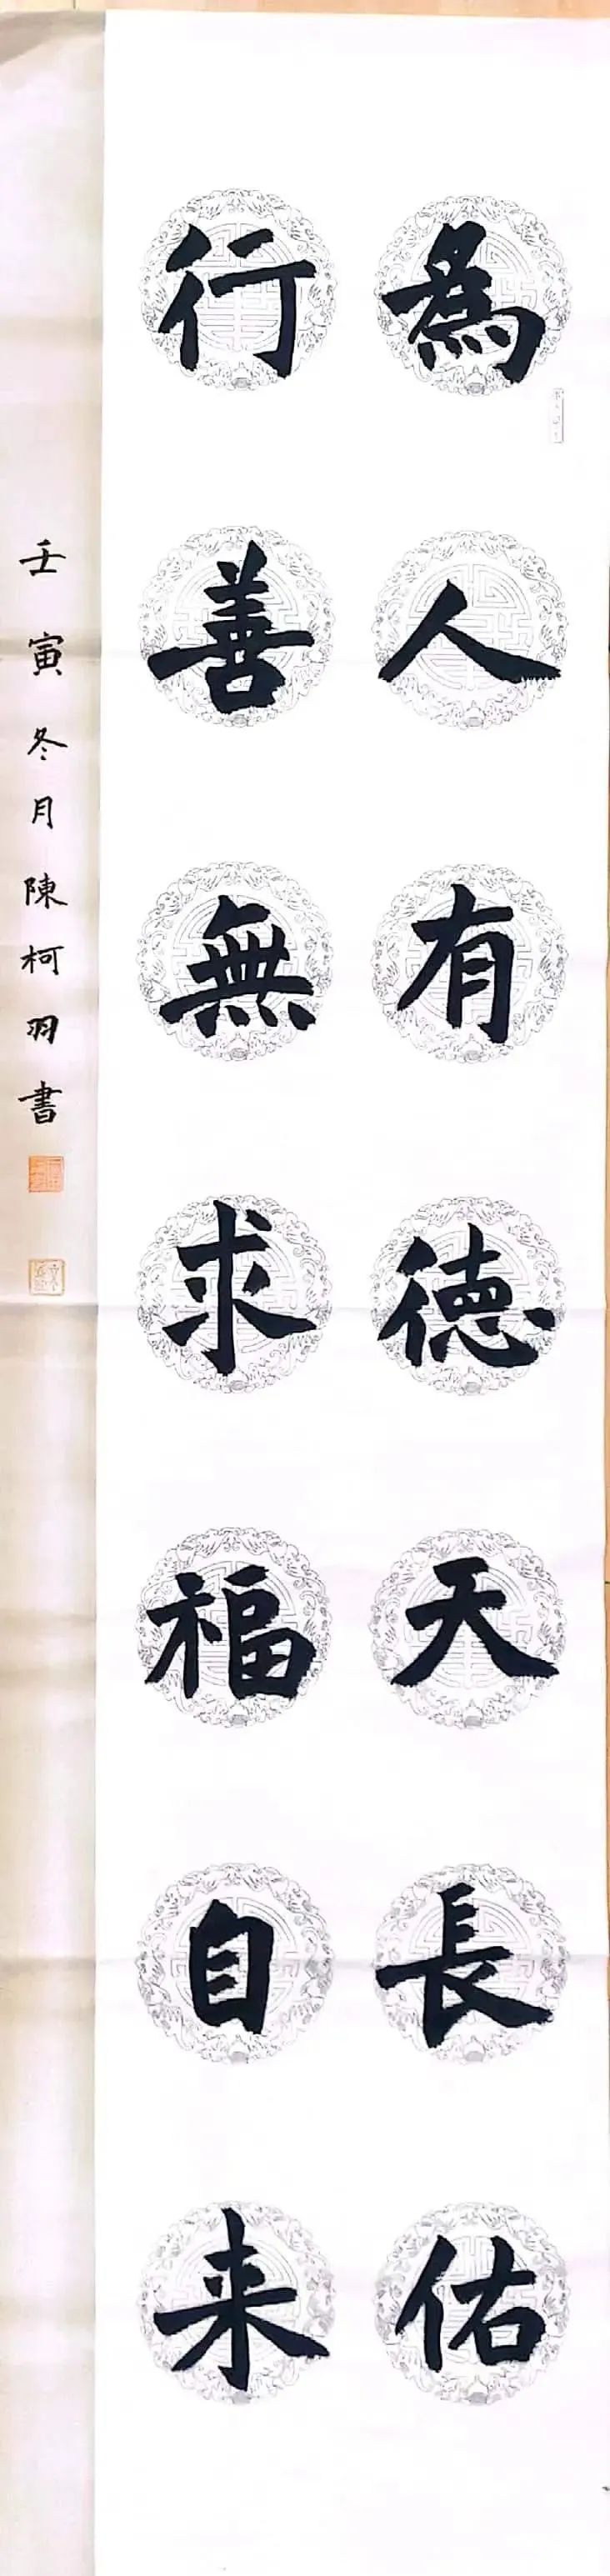 為人有德天長佑
行善無求福自来
壬寅冬月陳柯羽書